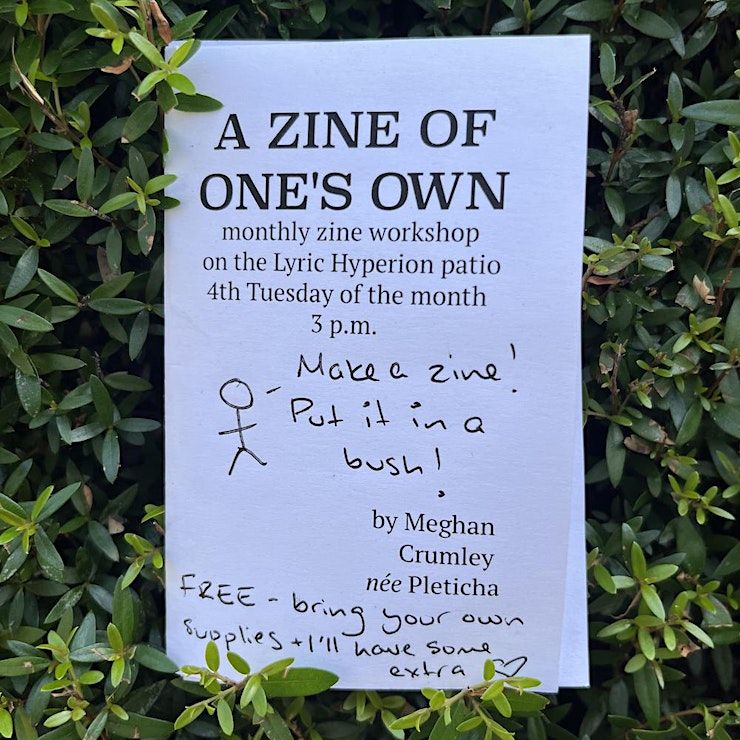 A ZINE OF
ONE'S OWN
monthly zine workshop
on the Lyric Hyperion patio
4th Tuesday of the month
3 p.m.
Make a zine!
Put it in a
bush!
by Meghan
Crumley
née Pleticha
FREE - bring your own
supplies + I'll have some
extra ♡